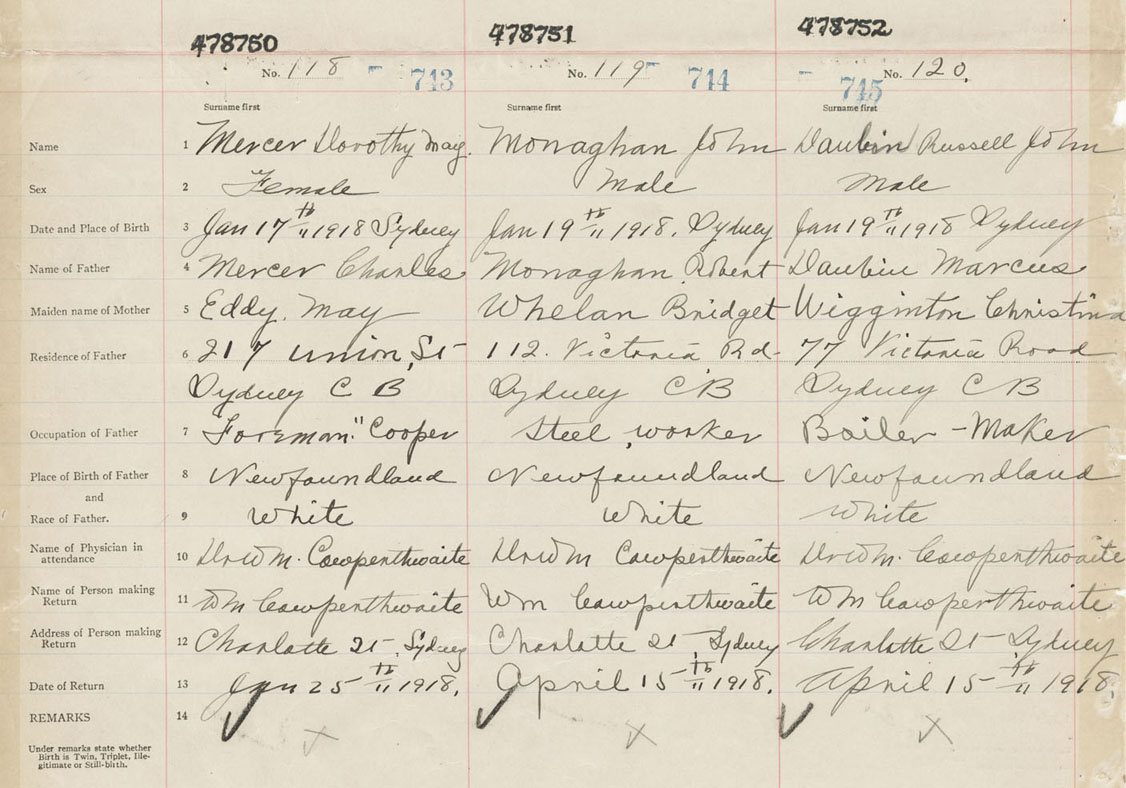 478750 478751 478752
No. 118 743 No. 119 744 745 No. 120.
Surname first Surname first Surname first
Name 1 Mercer Dorothy May. Monaghan John Daubin Russell John
Sex 2 Female Male Male
Date and Place of Birth 3 Jan 17th 1918 Sydney Jan 19th 1918. Sydney Jan 19th 1918 Sydney
Name of Father 4 Mercer Charles Monaghan Robert Daubin Marcus
Maiden name of Mother 5 Eddy. May Whelan Bridget Wigginton Christina
Residence of Father 6 217 Union St 112. Victoria Rd- 77 Victoria Road
Sydney C B Sydney C B Sydney C B
Occupation of Father 7 "Foreman" Cooper Steel worker Boiler-Maker
Place of Birth of Father 8 Newfoundland Newfoundland Newfoundland
and
Race of Father. 9 White White White
Name of Physician in
attendance 10 Dr Wm. Cowperthwaite Dr Wm Cowperthwaite Dr Wm. Cowperthwaite
Name of Person making
Return 11 Wm Cowperthwaite Wm Cowperthwaite Wm Cowperthwaite
Address of Person making
Return 12 Charlotte St, Sydney Charlotte St Sydney Charlotte St Sydney
Date of Return 13 Jan 25th 1918. April 15th 1918. April 15th 1918.
REMARKS 14
Under remarks state whether
Birth is Twin, Triplet, Ille-
gitimate or Still-birth.